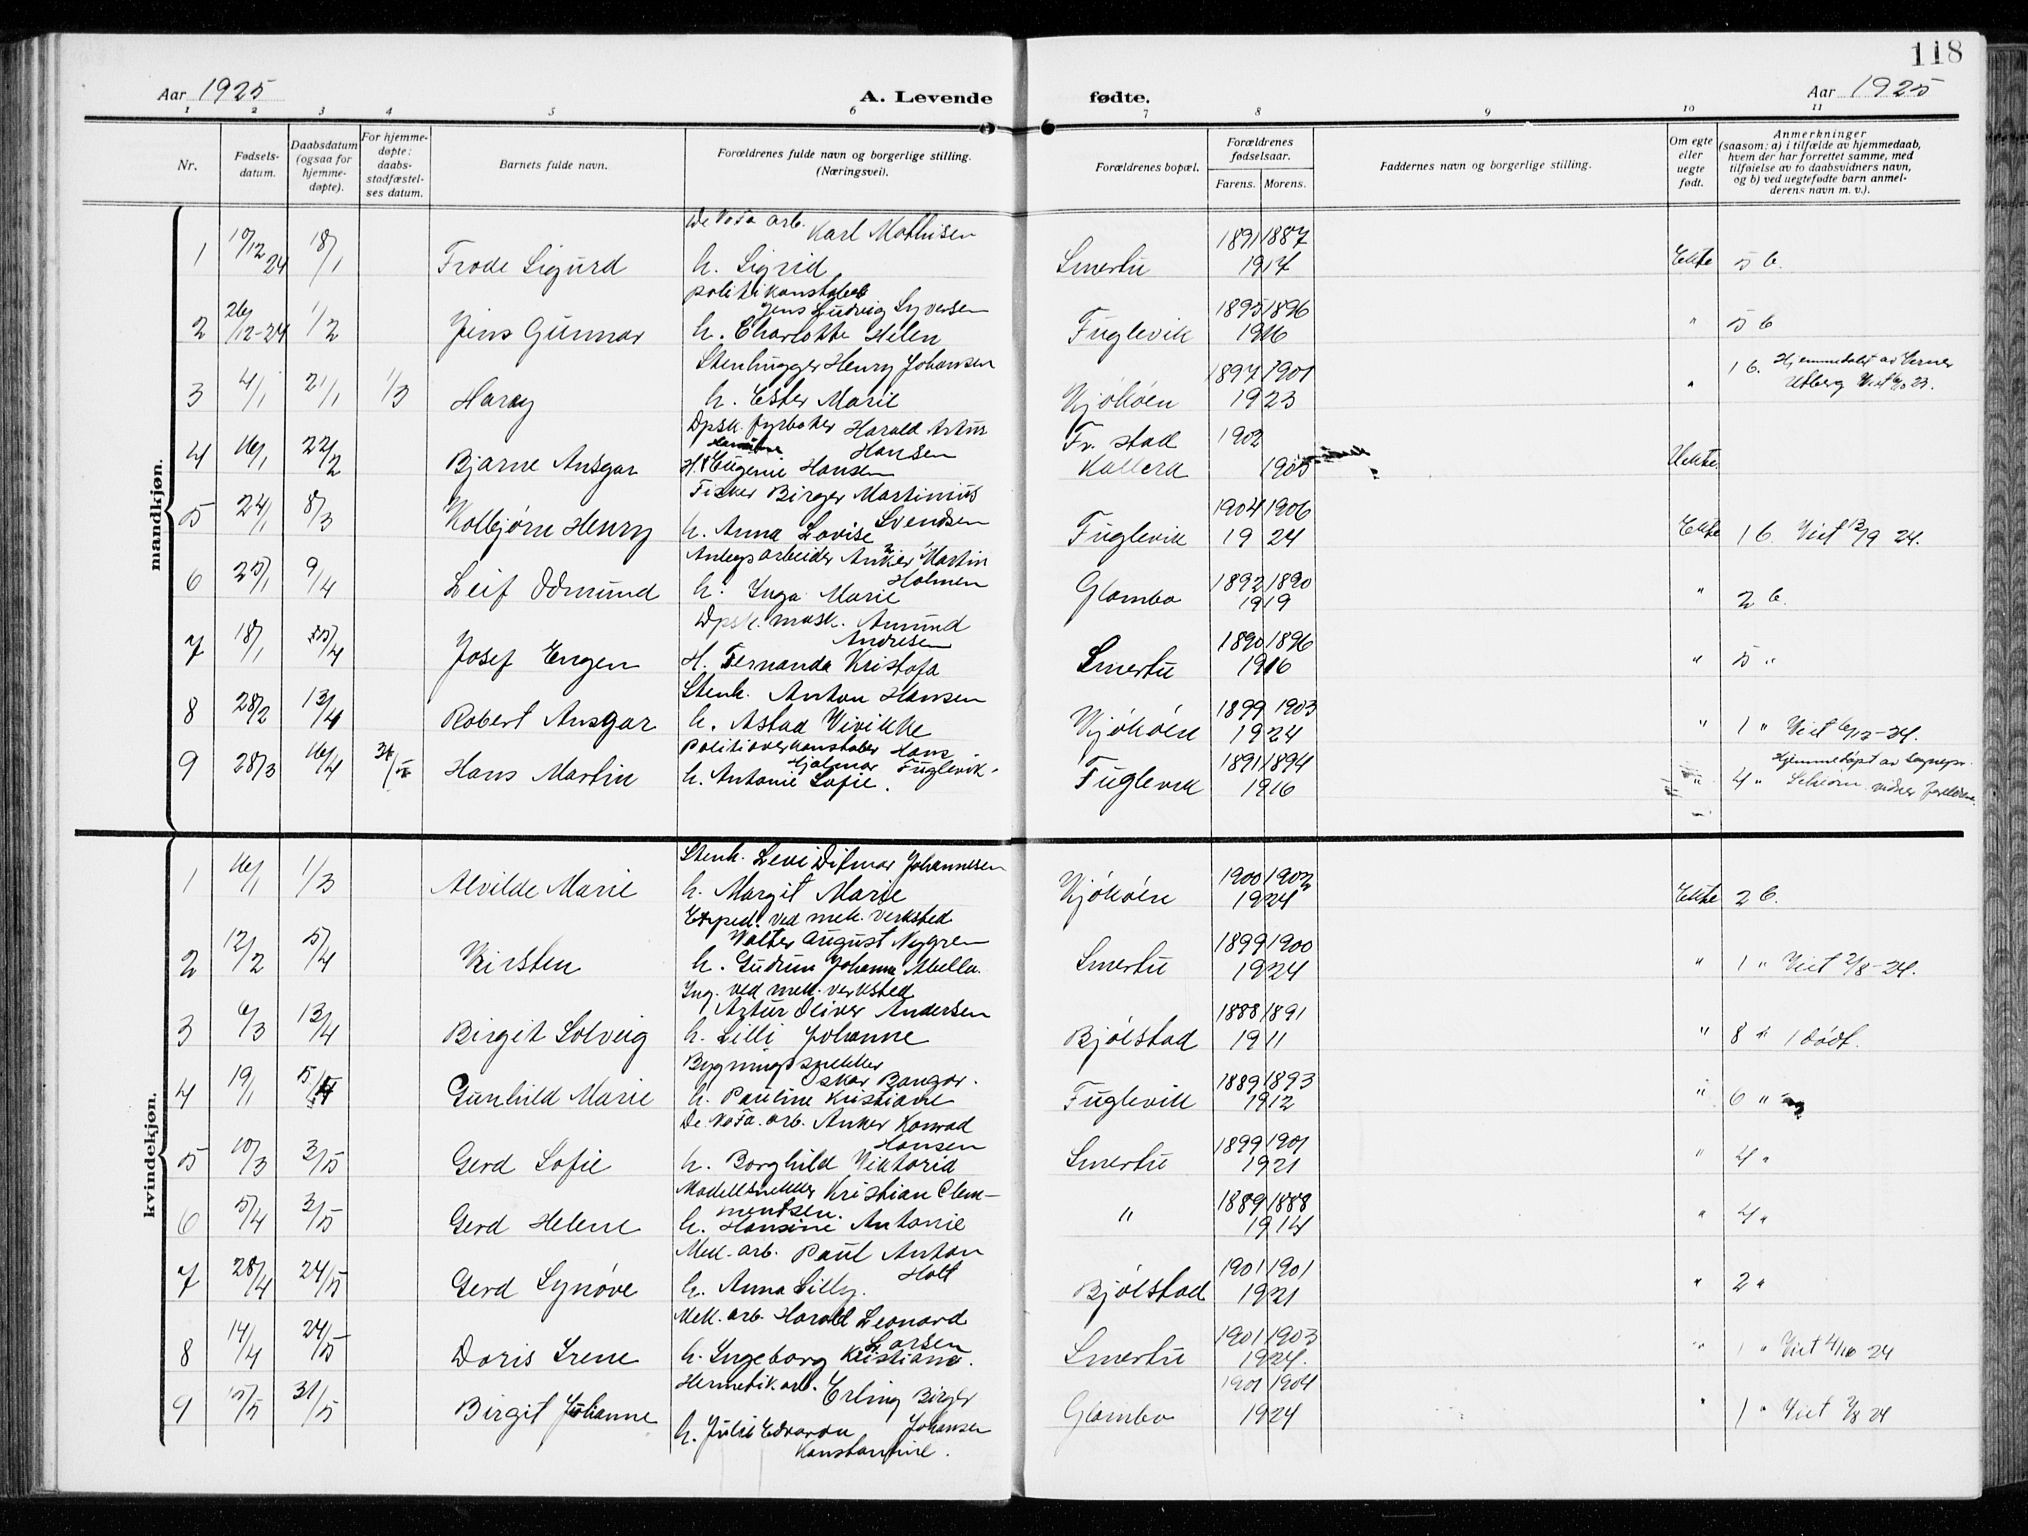 118
Aar 1925
A. Levende
fødte.
Aar 1925
1 2 3 4 5 6 7 8 9 10 11
Nr.
Fødsels-
datum.
Daabsdatum
(ogsaa for
hjemme-
døpte).
For hjemme-
døpte:
daabs-
stadfæstel-
ses datum.
Barnets fulde navn.
Forældrenes fulde navn og borgerlige stilling.
(Næringsvei).
Forældrenes bopæl.
Forældrenes
fødselsaar.
Farens. Morens.
Faddernes navn og borgerlige stilling.
Om egte
eller
uegte
født.
Anmerkninger
(saasom: a) i tilfælde av hjemmedaab,
hvem der har forrettet samme, med
tilføielse av to daabsvidners navn,
og b) ved uegtefødte barn anmel-
derens navn m. v.).
mandkjøn.
De NoFa arb. Karl Mathisen 1891 1887
1 10/12 24 18/1 Frode Sigurd h. Sigrid Smertu 1917 Ekte 5 b.
politikonstabel
Jens Ludvig Syversen 1895 1896
2 26/12-24 1/2 Jens Gunnar h. Charlotte Helen Fuglevik 1916 " 5 b
Stenhugger Henry Johansen 1897 1901 1 b. Hjemmedøbt av Verner
3 4/1 21/1 1/3 Harry h. Ester Marie Kjøkøen 1923 " Utberg
Dpsk. fyrbøter Harald Artur Fr. stad 1902
Hansen
4 16/1 22/2 Bjarne Ansgar Eugenie Hansen Kallera 1905 Uekte
Fisker Birger Martinius 1904 1906
Svendsen
5 24/1 8/3 Kolbjørn Henry h. Anna Lovise Fuglevik 1924 Ekte 1 b. Viet 13/9 24.
Anlegsarbeider Anker Martin
Holmen 1892 1890
6 25/1 9/4 Leif Odmund h. Inga Marie Glombo 1919 " 2 b.
Dpsk. mask. Amund
Andresen 1890 1896
7 18/1 Josef Engen H. Fernanda Kristofa Smertu 1916 " 5 "
Stenh. Anton Hansen 1899 1903
8 28/2 13/4 Robert Ansgar h. Astad Vivikke Kjøkøen 1924 " 1 " Viet 6/12-24.
Politioverkonstabel Hans
Hjalmar Fuglevik 1891 1894 Hjemmedøpt av
9 28/3 16/4 31/5 Hans Martin h. Antonie Sofie. Fuglevik 1916 " 4 "
kvindekjøn.
Stenh. Levi Ditmar Johannesen 1900 1902
1 16/1 1/3 Alvilde Marie h. Margit Marie Kjøkøen 1924 Ekte 2 b.
Exped. ved mek. verksted
Walter August Nygren 1899 1900
2 12/2 5/4 Kirsten h. Gudrun Johanna Abella. Smertu 1924 " 1 " Viet 2/8-24.
Ing. ved mek. verksted
Artur Oliver Andersen 1888 1891
3 6/3 13/4 Birgit Solveig h. Lilli Johanne Bjølstad 1911 " 8 " 1 dødt.
Bygningssnekker
Oskar Bangor. 1889 1893
4 19/1 Gunhild Marie h. Pauline Kristiane Fuglevik 1912 " 6 "
De NoFa. arb. Anker Konrad
Hansen 1899 1901
5 10/3 3/5 Gerd Sofie h. Borghild Viktoria Smertu 1921 " 4 "
Modellsnekker Kristian Clem-
mentsen. 1889 1888
6 5/4 3/5 Gerd Helene h. Hansine Antonie " 1914 " 4 "
Mek. arb. Paul Anton
Holt 1901 1901
7 28/4 24/5 Gerd Synøve h. Anna Lilly. Bjølstad 1921 " 2 "
Mek. arb. Harald Leonard
Larsen 1901 1903
8 14/4 24/5 Doris Irene h. Ingeborg Kristiane. Smertu 1924. " 1 " Viet 4/10 24
Hermetik. arb. Erling Birger 1901 1904
9 15/5 31/5 Birgit Johanne Johansen Glombo 1924 " 1 " Viet 2/8 24
h. Julie Edvarda
Konstantine.